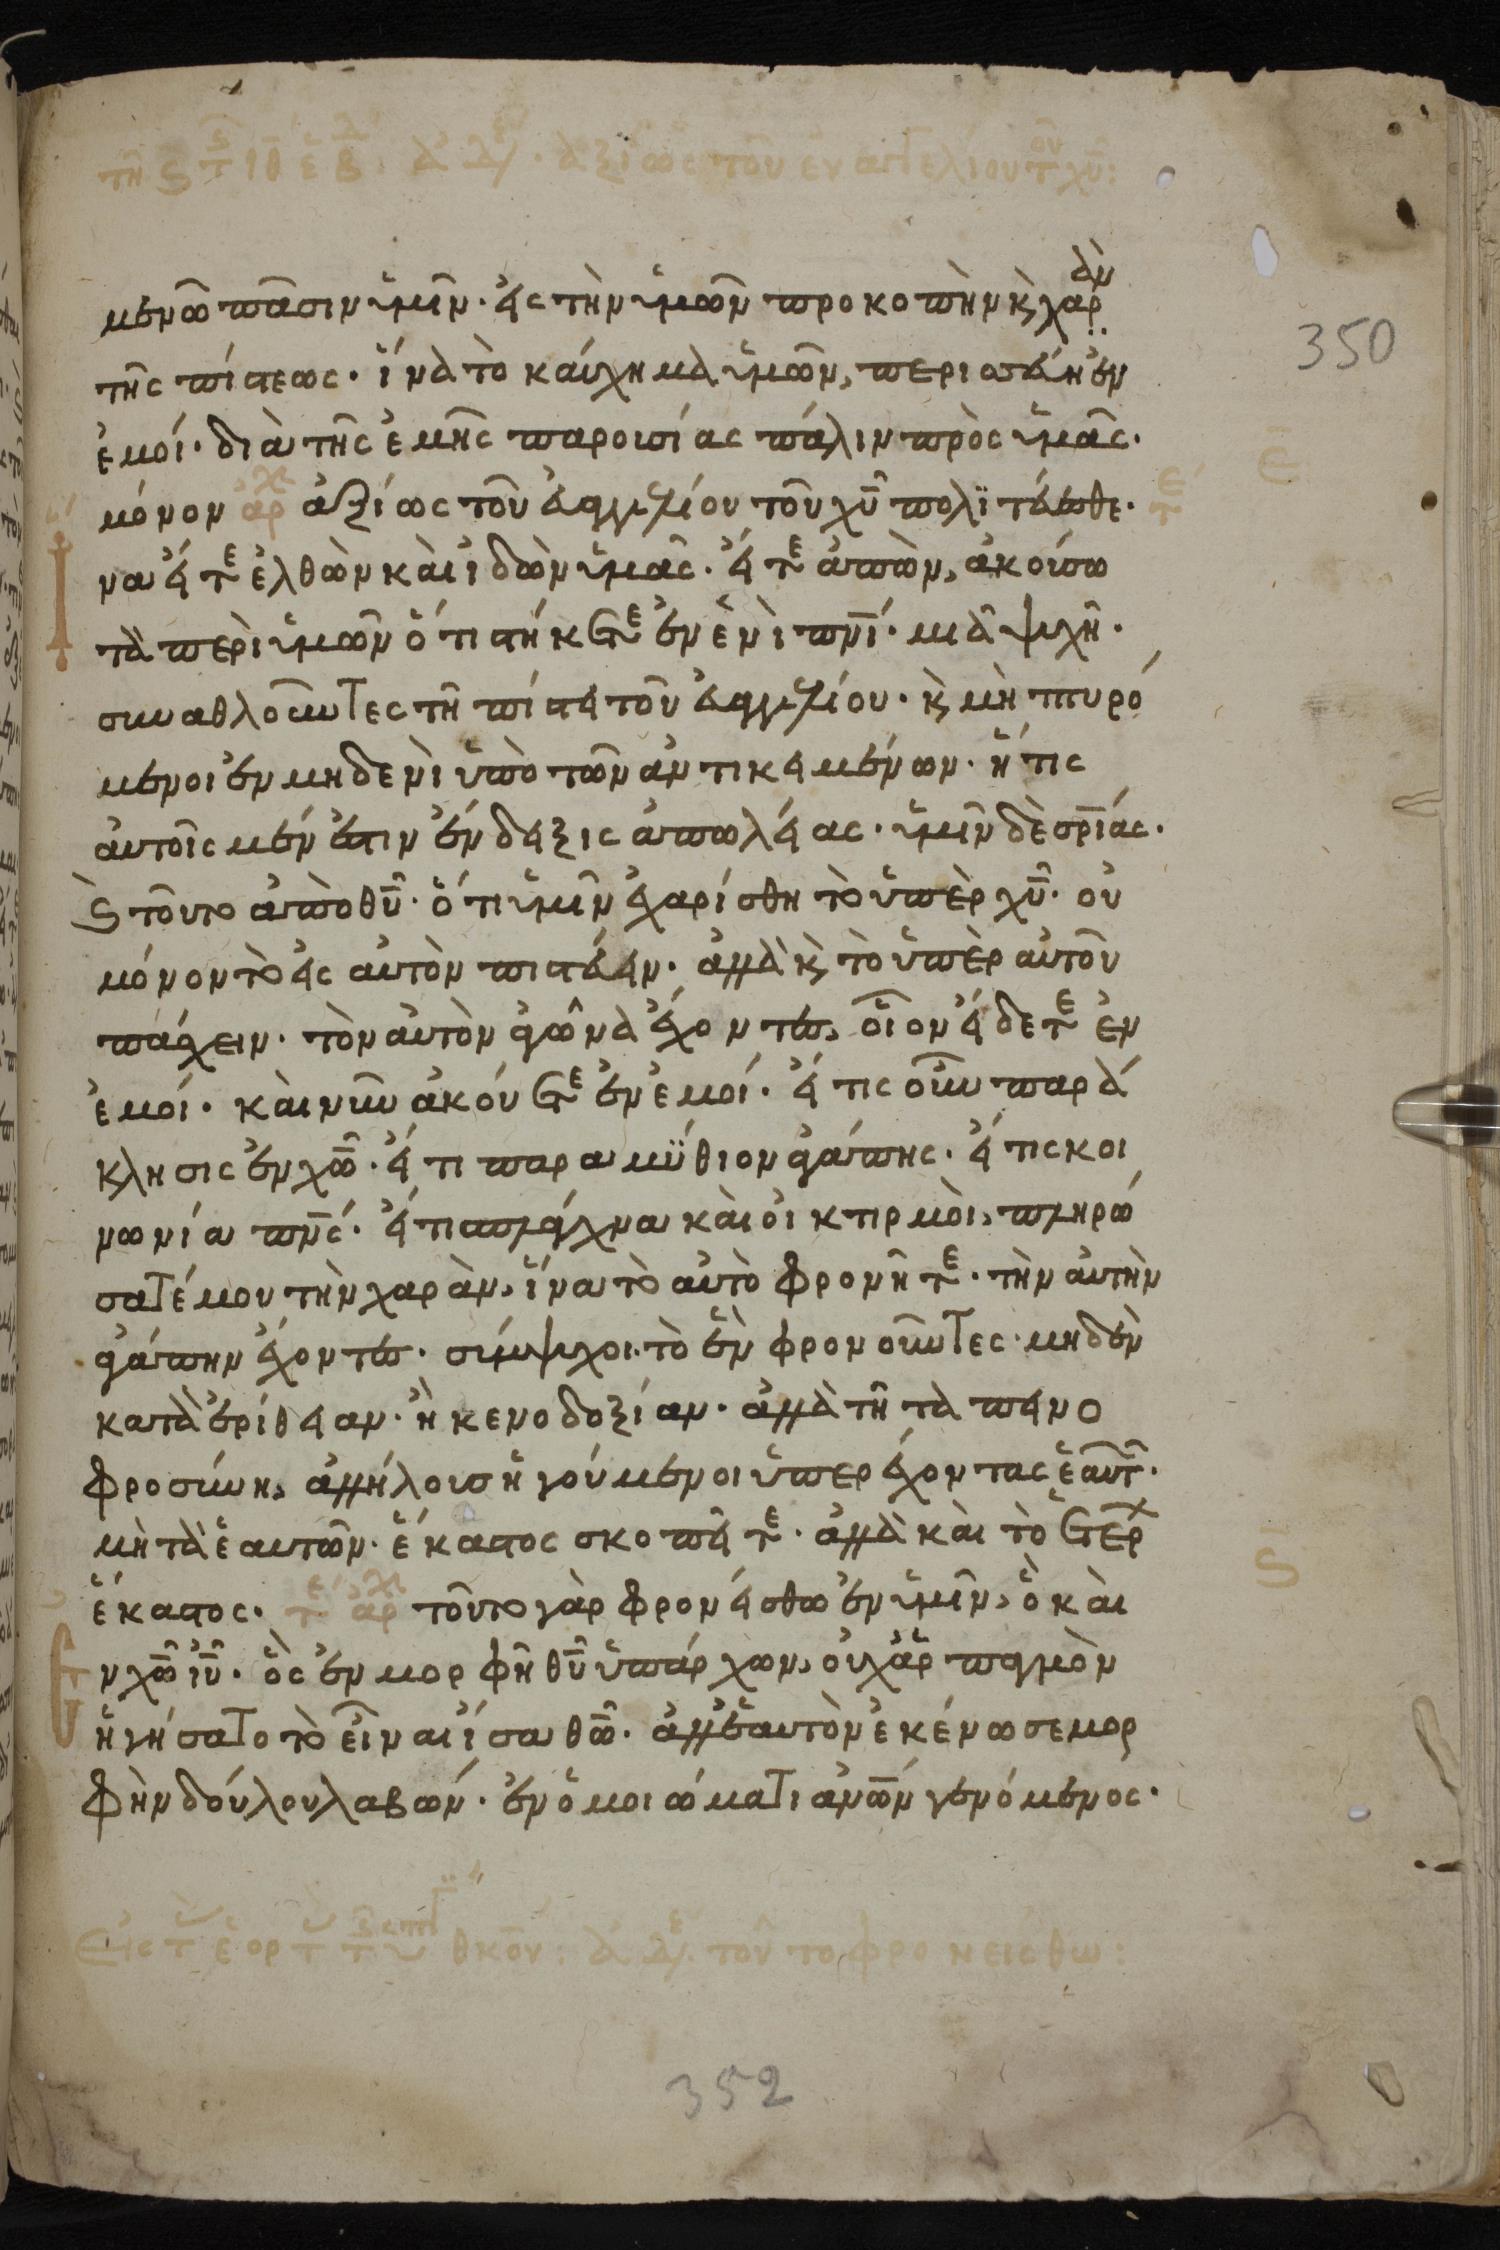 τῆ ς τ ιθ ε β. ἀδελ. ἀξίως τοῦ εὐαγγελίου τοῦ χῦ:
μενῶ πᾶσιν ὑμῖν· εἰς τὴν ὑμῶν προκοπὴν κ χαρὰν
350
τῆς πίστεως· ἵνα τὸ καύχημα ὑμῶν, περισσεύη ἐν
ἐμοί· διὰ τῆς ἐμῆς παρουσίας πάλιν πρὸς ὑμᾶς·
ε
μόνον ἀρχ ἀξίως τοῦ εὐαγγελίου τοῦ χῦ πολιτεύεσθε· τε
να εἴτε ἐλθὼν καὶ ἰδὼν ὑμᾶς· εἴτε ἀπὼν, ἀκούσω
τὰ περὶ ὑμῶν ὅτι στήκετε ἐν ἑνὶ πνι· μιᾶ ψυχῆ·
συναθλοῦντες τῆ πίστει τοῦ εὐαγγελίου· κ μὴ πτυρό
μενοι ἐν μηδενὶ ὑπὸ τῶν ἀντικειμένων· ἥτις
αὐτοῖς μέν ἐστιν ἔνδειξις ἀπωλείας· ὑμῖν δὲ σρίας·
κ τοῦτο ἀπὸ θῦ· ὅτι ὑμῖν ἐχαρίσθη τὸ ὑπὲρ χῦ· οὐ
μόνον τὸ εἰς αὐτὸν πιστεύειν· ἀλλὰ κ τὸ ὑπὲρ αὐτοῦ
πάσχειν· τὸν αὐτὸν ἀγῶνα ἔχοντες, οἷον εἴδετε ἐν
ἐμοί· καὶ νῦν ἀκούετε ἐν ἐμοί· εἴ τις οὖν παρά
κλησις ἐν χῶ· εἴ τι παραμύθιον ἀγάπης· εἴ τις κοι
νωνία πνς· εἴ τι σπλάγχνα καὶ οἰκτιρμοὶ, πληρώ
σατέ μου τὴν χαρὰν, ἵνα τὸ αὐτὸ φρονῆτε· τὴν αὐτὴν
ἀγάπην ἔχοντες· σύμψυχοι· τὸ ἓν φρονοῦντες· μηδὲν
κατὰ ἐρίθειαν· ἢ κενοδοξίαν· ἀλλὰ τῆ ταπεινο
φροσύνη, ἀλλήλους ἡγούμενοι ὑπερέχοντας ἑαυτ·
μὴ τὰ ἑαυτῶν· ἕκαστος σκοπεῖτε· ἀλλὰ καὶ τὸ ἑτέρ
ς
ἕκαστος· τε ἀρχ τοῦτο γὰρ φρονείσθω ἐν ὑμῖν, ὃ καὶ
ἐν χῶ ιῦ· ὃς ἐν μορφῆ θῦ ὑπάρχων, οὐχ ἁρπαγμὸν
ἡγήσατο τὸ εἶναι ἴσα θῶ· ἀλλ' ἑαυτὸν ἐκένωσε μορ
φὴν δούλου λαβών· ἐν ὁμοιώματι ἀνων γενόμενος·
Εἰς τ ἑορτ τ θκου: ἀδελ. τοῦτο φρονείσθω:
352